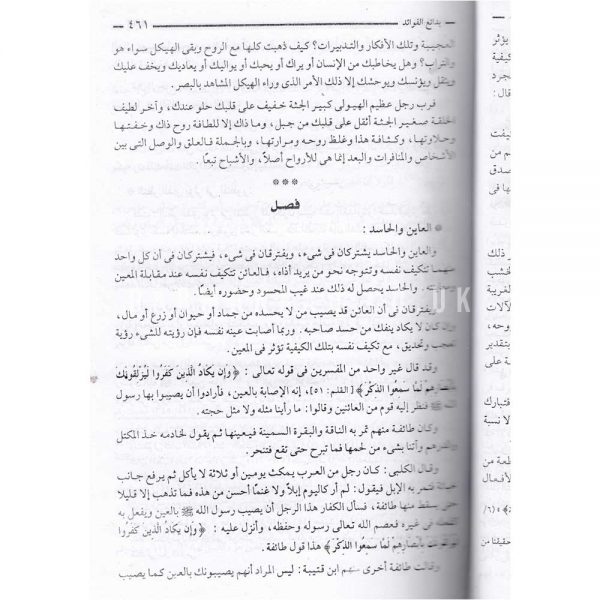 بدائع الفوائد ٤٦١
العجيبة وتلك الأفكار والتدبيرات؟ كيف ذهبت كلها مع الروح وبقى الهيكل سواء هو
والتراب؟ وهل يخاطبك من الإنسان أو يراك أو يحبك أو يواليك أو يعاديك ويخف عليك
ويثقل ويؤنسك ويوحشك إلا ذلك الأمر الذى وراء الهيكل المشاهد بالبصر .
فرب رجل عظيم الهيولى كبير الجثة خفيف على قلبك حلو عندك، وآخر لطيف
الخلقة صغير الجثة أثقل على قلبك من جبل، وما ذاك إلا للطافة روح ذاك وخفتها
وحلاوتها، وكثافة هذا وغلظ روحه ومرارتها، وبالجملة فالعلق والوصل التى بين
الأشخاص والمنافرات والبعد إنما هى للأرواح أصلاً، والأشباح تبعًا .
***
فصل
* العاين والحاسد :
والعاين والحاسد يشتركان فى شىء، ويفترقان فى شىء، فيشتركان فى أن كل واحد
منهما تتكيف نفسه وتتوجه نحو من يريد أذاه، فالعائن تتكيف نفسه عند مقابلة المعين
والحاسد يحصل له ذلك عند غيب المحسود وحضوره أيضًا .
ويفترقان فى أن العائن قد يصيب من لا يحسده من جماد أو حيوان أو زرع أو مال،
وإن كان لا يكاد ينفك من حسد صاحبه . وربما أصابت عينه نفسه فإن رؤيته للشىء رؤية
تعجب وتحديق، مع تكيف نفسه بتلك الكيفية تؤثر فى المعين .
وقد قال غير واحد من المفسرين فى قوله تعالى : ﴿وَإِن يَكَادُ الَّذِينَ كَفَرُوا لَيُزْلِقُونَكَ
بِأَبْصَارِهِمْ لَمَّا سَمِعُوا الذِّكْرَ﴾ [القلم: ٥١]، إنه الإصابة بالعين، فأرادوا أن يصيبوا بها رسول
الله ﷺ فنظر إليه قوم من العائنين وقالوا: ما رأينا مثله ولا مثل حجته .
وكان طائفة منهم تمر به الناقة والبقرة السمينة فيعينها ثم يقول لخادمه خذ المكتل
والدرهم وآتنا بشىء من لحمها فما تبرح حتى تقع فتنحر .
وقال الكلبى: كان رجل من العرب يمكث يومين أو ثلاثة لا يأكل ثم يرفع جانب
خبائه فتمر به الإبل فيقول: لم أر كاليوم إبلاً ولا غنمًا أحسن من هذه فما تذهب إلا قليلا
حتى يسقط منها طائفة، فسأل الكفار هذا الرجل أن يصيب رسول الله ﷺ بالعين ويفعل به
كفعله فى غيره فعصم الله تعالى رسوله وحفظه، وأنزل عليه : ﴿وَإِن يَكَادُ الَّذِينَ كَفَرُوا
لَيُزْلِقُونَكَ بِأَبْصَارِهِمْ لَمَّا سَمِعُوا الذِّكْرَ﴾ هذا قول طائفة .
وقالت طائفة أخرى منهم ابن قتيبة : ليس المراد أنهم يصيبونك بالعين كما يصيب